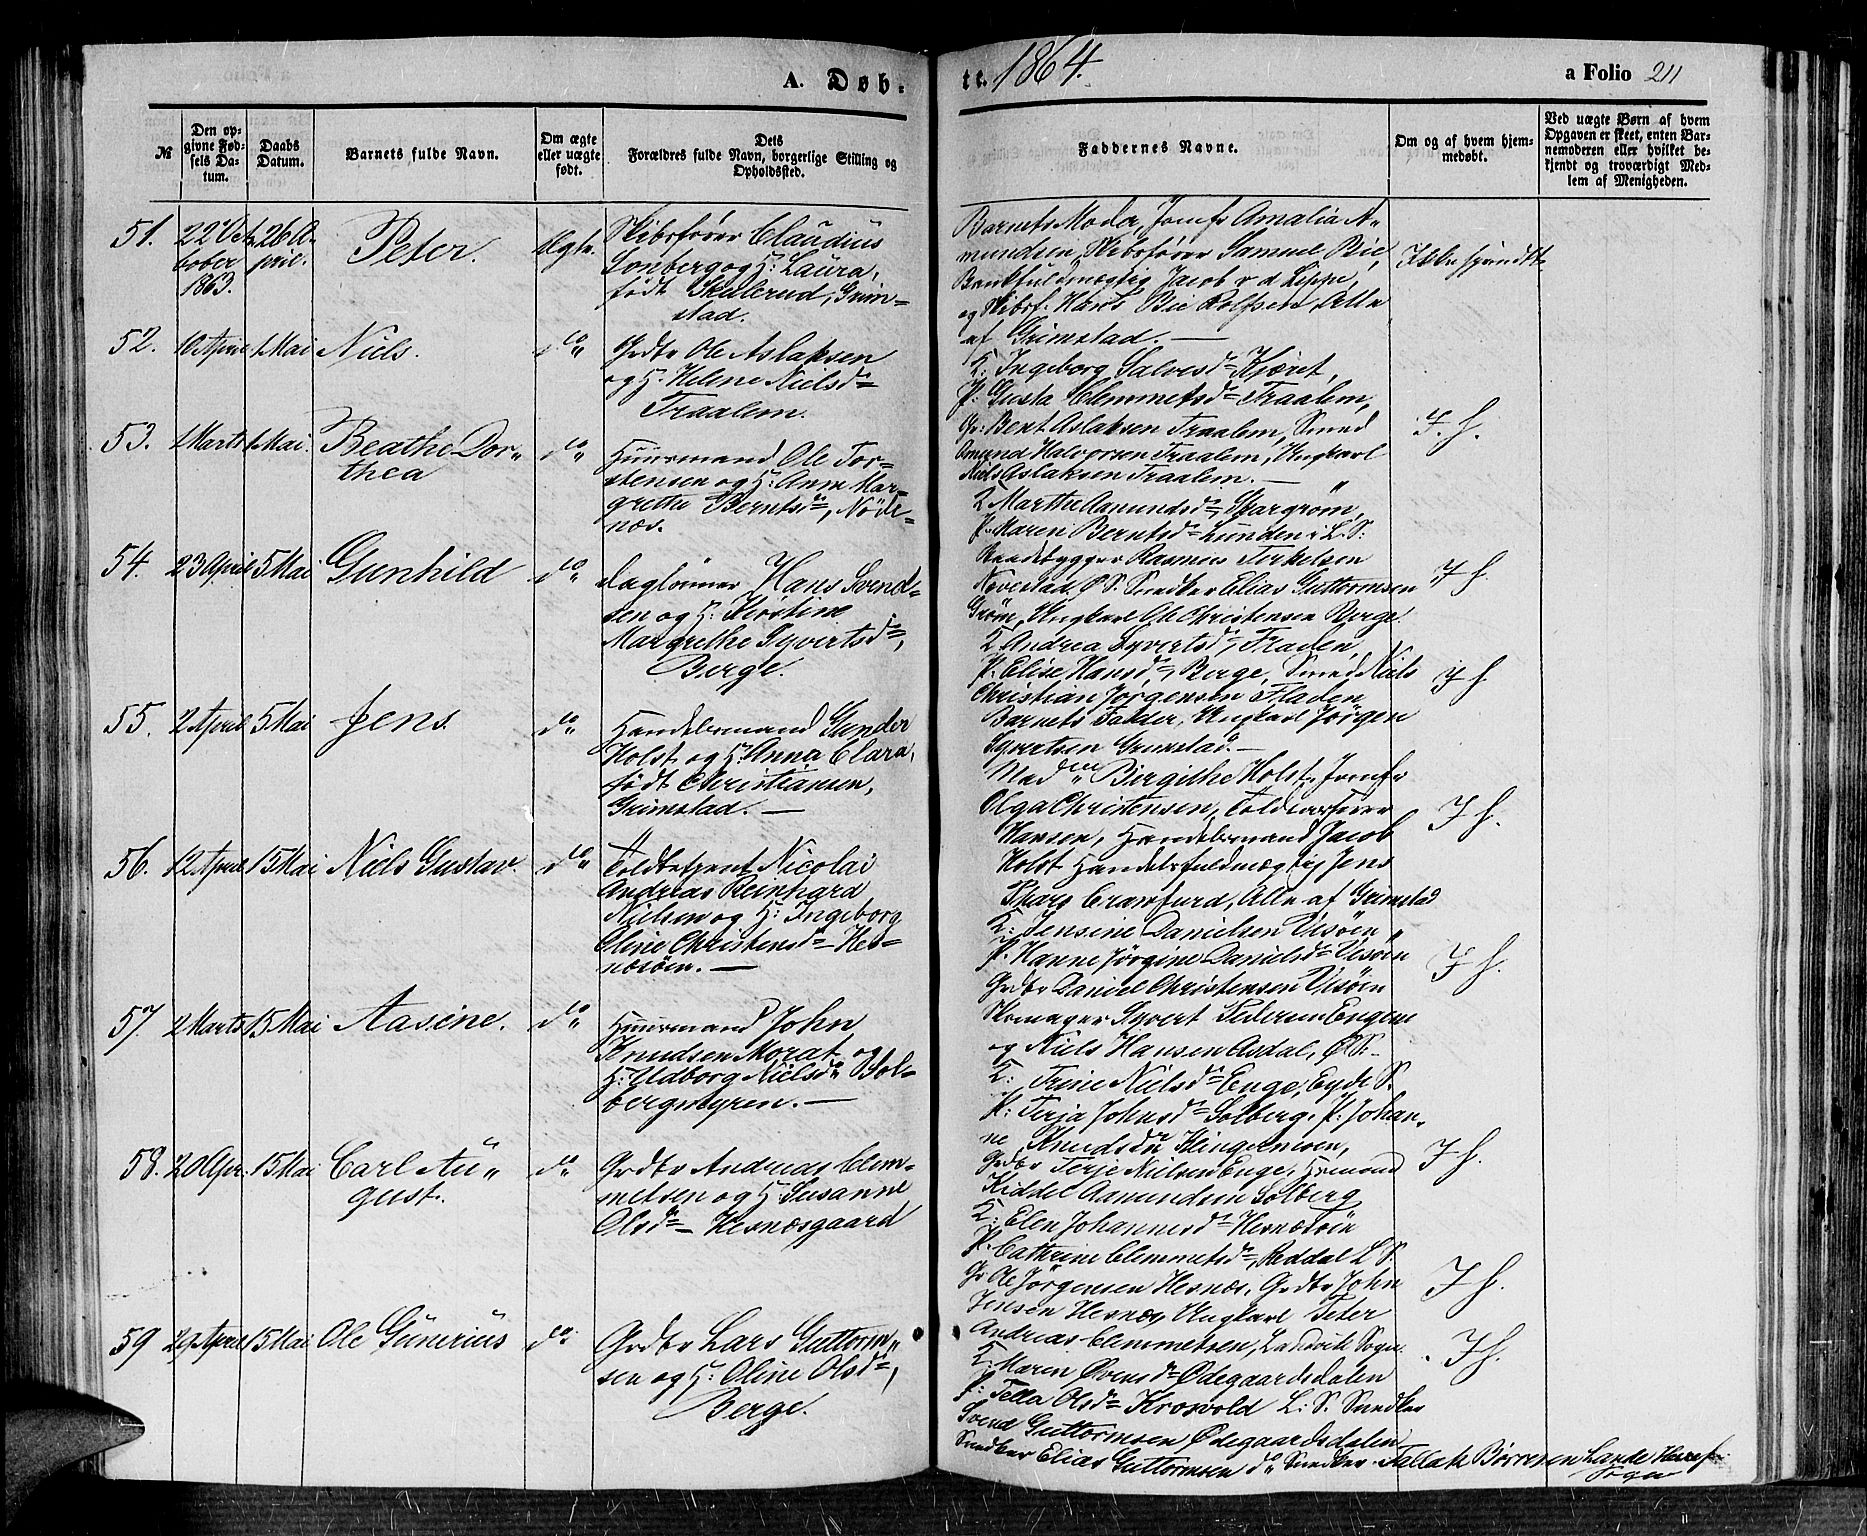 A. Døb-
te. 1864.
a Folio 211
№
Den op-
givne Fød-
sels Da-
tum.
Daabs
Datum.
Barnets fulde Navn.
Om ægte
eller uægte
født.
Dets
Forældres fulde Navn, borgerlige Stilling og
Opholdssted.
Faddernes Navne.
Om og af hvem hjem-
medøbt.
Ved uægte Børn af hvem
Opgaven er skeet, enten Bar-
nemoderen eller hvilket be-
kjendt og troværdigt Med-
lem af Menigheden.
51.
22 Oc-
tober
1863.
26 A-
pril.
Peter.
Ægte
Skibsfører Claudius
Lonberg og H: Laura,
født Skalerud, Grim-
stad.
Barnets Moder, Jomfr Amalia A-
mundsen, Skibsfører Samuel Bie,
Bankfuldmægtig Jacob v d Lippe,
og Skibsf. Hans Bie Rolfsen Alle
af Grimstad. —
52.
10 April
1 Mai
Niels.
do
Grdbr Ole Aslaksen
og H. Helene Nielsd
Traalem.
K: Ingeborg Salvesd Kjæret,
P: Gusta Clemmetsd Traalem,
Gr: Bent Aslaksen Traalem, Smed
Omund Halvorsen Traalem, Ungkarl
Niels Aslaksen Traalem. —
J. h.
53.
1 Marts
1 Mai.
Beathe Dor-
thea
do
Huusmand Ole Tor-
stensen og H: Anne Mar-
grethe Berntsd, Nöde-
næs.
K Marthe Aamundsd, Skargrøm,
P. Maren Berntsd Lunden i L. S:
Baadebygger Rasmus Terkelsen
Nevestad Ø. S. Snedker Elias Guttormsen
Grøm, Ungkarl Ole Christensen Berge.
J h.
54.
23 April
5 Mai
Gunhild
do
Daglønner Hans Svend-
sen og H: Kirstine
Margrethe Syvertsd,
Berge.
K Andrea Syvertsd, Fladen,
P. Elise Hansd, Berge, Smed Niels
Christian Jörgensen Fladen
Barnets Fader, Ungkarl Jörgen
Syvertsen Grimstad. —
J h
55.
2 April
5 Mai
Jens.
do
Handelsmand Gunder
Holst og H: Anna Clara,
født Christiansen,
Grimstad. —
Madm Birgithe Holst, Jomfr
Olga Christensen, Toldrorfører
Hansen, Handelsmand Jacob
Holst Handelsfuldmægtig Jens
Skars Crawfurd, Alle af Grimstad
J h.
56.
12 April
15 Mai
Niels Gustav.
do
Toldbetjent Nicolai
Andreas Reinhard
Nielsen og H: Ingeborg
Oline Christensd Hes-
næsöen. —
K: Jensine Danielsen Visöen,
P. Hanne Jörgine Danielsd Visöen
Grdbr Daniel Christensen Visöen
Skomager Syvert Pedersen Engene
og Niels Hansen Asdal, Ø S. —
J h.
57.
2 Marts
15 Mai
Aasine.
do
Huusmand John
Knudsen Morat og
H: Udborg Nielsd Sol-
bergmyren. —
K: Trine Nielsd Enge, Eyde S.
P: Terja Johnsd Solberg. P: Johan-
ne Knudsd Klingremoen,
Grdbr Terje Nielsen Enge, Husmand
Kiddel Aamundsen Solberg
J h.
58.
20 Apr.
15 Mai
Carl Au-
gust.
do
Grdbr Andreas Clem-
metsen og H Susanne
Olsd — Hesnæsgaard
K: Elen Johannesd Hesnæsöen
P. Cathrine Clemmetsd, Reddal L S.
Gr Ole Jörgensen Hesnæs, Grdbr John
Jensen Hesnæs Ungkarl Peter
Andreas Clemmetsen, Landvik Sogn.
J h.
59
29 April
15 Mai
Ole Gunerius
do.
Grdbr Lars Guttorm-
sen og H: Oline Olsd,
Berge.
K: Maren Svensd Ødegaardsdalen
P: Tella Olsd Krosvold L. S. Snedker
Svend Guttormsen Ødegaardsdalen
Snedker Elias Guttormsen do Snedker Tallak Börresen Lande
Sogn
J h.